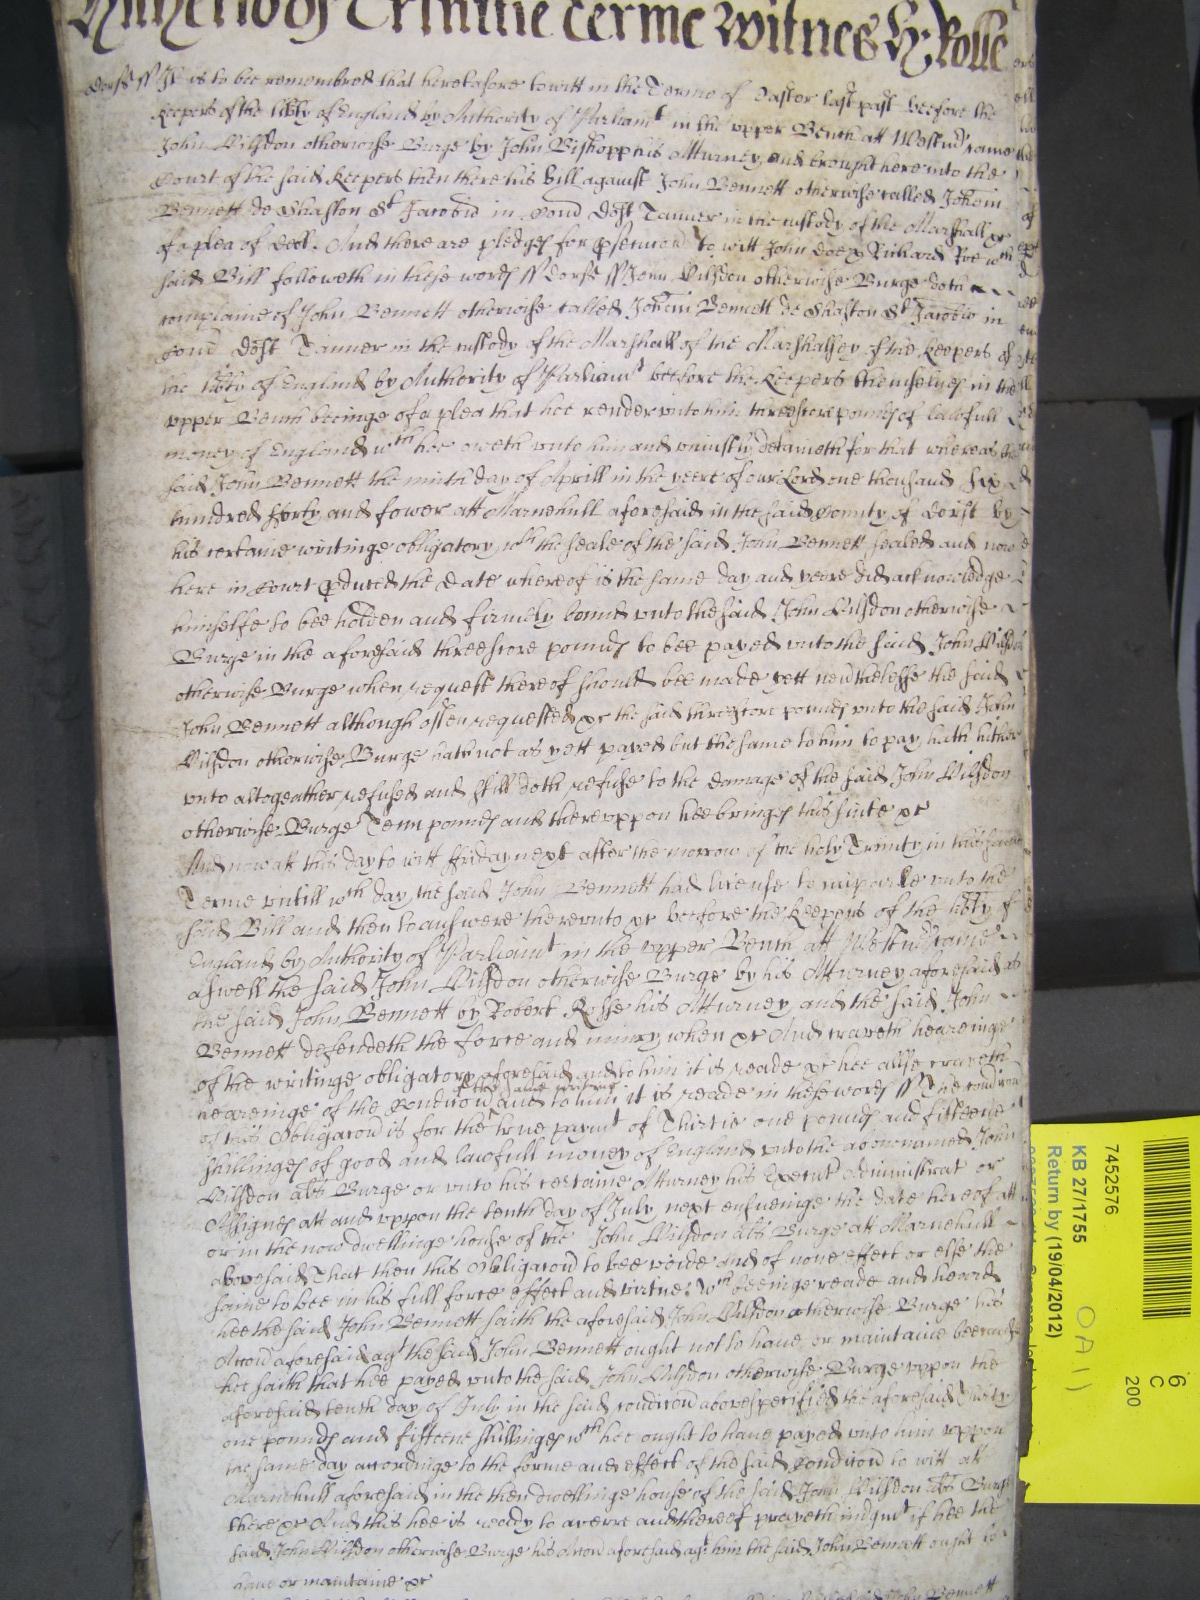 Terme Witnes H: Rolle
Dorst ss It is to bee remembred that heretofore to witt in the Terme of Easter last past beefore the
Keepers of the libty of England by Authority of Parliamt in the upper Bench att Westm came
John Vilsdon otherwise Burge by John Bishopp his Atturney and brought here into the
Court of the said Keepers then there his Bill against John Bennett otherwise called Johem
Bennett de Shaston St Jacobi in Com Dorst Tanner in the custody of the Marshall &c
of a plea of Debt. And there are pledges for psecucon to witt John Doe & Richard Roe wch
said Bill followeth in these words ss Dorst ss John Vilsdon otherwise Burge doth
complaine of John Bennett otherwise called Johem Bennett de Shaston St Jacobi in
Com Dorst Tanner in the custody of the Marshall of the Marshalsey of the Keepers of
the libty of England by Authority of Parliamt beefore the Keepers themselves in the
upper Bench beeinge of a plea that hee render unto him threescore pounds of lawfull
money of England wch hee oweth unto him and uniustly detaineth for that whereas the
said John Bennett the ninth day of Aprill in the yeere of our Lord one thousand six
hundred forty and fower att Marnehull aforesaid in the said County of Dorst by
his certaine writinge obligatory wth the seale of the said John Bennett sealed and now
here in Court pduced the date whereof is the same day and yeere did acknowledge
himselfe to bee holden and firmely bound unto the said John Vilsdon otherwise
Burge in the aforesaid threescore pounds to bee payed unto the said John Vilsdon
otherwise Burge when request thereof should bee made yett neverthelesse the said
John Bennett although often requested &c the said threescore pounds unto the said John
Vilsdon otherwise Burge hath not as yett payed but the same to him to pay hath hither
unto altogeather refused and still doth refuse to the damage of the said John Vilsdon
otherwise Burge Tenn pounds and thereuppon hee brings this suite &c
And now att this day to witt ffriday next after the morrow of the holy Trinity in this same
Terme untill wch day the said John Bennett had license to imparle unto the
said Bill and then to answere thereunto &c beefore the Keepers of the libty of
England by Authority of Parliamt in the upper Bench att Westm came
aswell the said John Vilsdon otherwise Burge by his Atturney aforesaid as
the said John Bennett by Robert Rosse his Atturney and the said John
Bennett defendeth the force and iniury when &c And craveth heareinge
of the writinge obligatory aforesaid and to him it is reade &c hee allsoe craveth
heareinge of the Condicon of the same writing and to him it is reade in these words ss The condicon
of this Obligacon is for the true paymt of Thirtie one pounds and fifteene
shillings of good and lawfull money of England unto the abovenamed John
Vilsdon als Burge or unto his certaine Atturney his Execut Administrat or
Assignes att and uppon the tenth day of July next ensueinge the date hereof att
or in the now dwellinge house of the John Vilsdon als Burge att Marnehull
abovesaid That then this Obligacon to bee voide and of none effect or else the
same to bee in his full force effect and virtue: Wch beeinge reade and heard
hee the said John Bennett saith the aforesaid John Vilsdon otherwise Burge his
Accon aforesaid agt the said John Bennett ought not to have or maintaine beecause
hee saith that hee payed unto the said John Vilsdon otherwise Burge uppon the
aforesaid tenth day of July in the said condicon abovespecified the aforesaid Thirty
one pounds and fifteene shillings wch hee ought to have payed unto him uppon
the same day accordinge to the forme and effect of the said Condicon to witt att
Marnehull aforesaid in the then dwellinge house of the said John Vilsdon als Burge
there &c And this hee is ready to averre and thereof prayeth iudgmt if hee the
said John Vilsdon otherwise Burge his Accon aforesaid agt him the said John Bennett ought to
have or maintaine &c
7452576
KB 27/1755
Return by (19/04/2012)
OA11
6
C
200